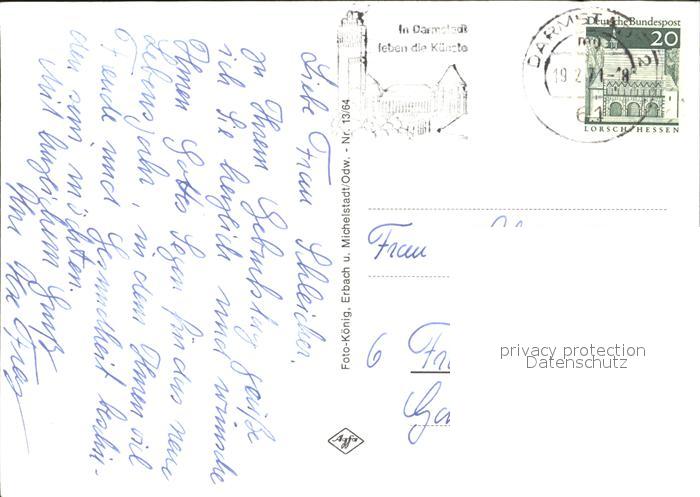 Liebe Frau Schleicher,
zu Ihrem Geburtstag grüße
ich Sie herzlich und wünsche
Ihnen Gottes Segen für das neue
Lebensjahr, in dem Ihnen viel
Freude und Gesundheit beschie-
den sein möchten.
Mit herzlichem Gruß
Ihr
Foto-König, Erbach u. Michelstadt/Odw. - Nr. 13/64
Agfa
In Darmstadt
leben die Künste
DARMSTADT 2
mg
19.2.71-8
61
Deutsche Bundespost
20
LORSCH/HESSEN
Frau
6 Fr
privacy protection
Datenschutz